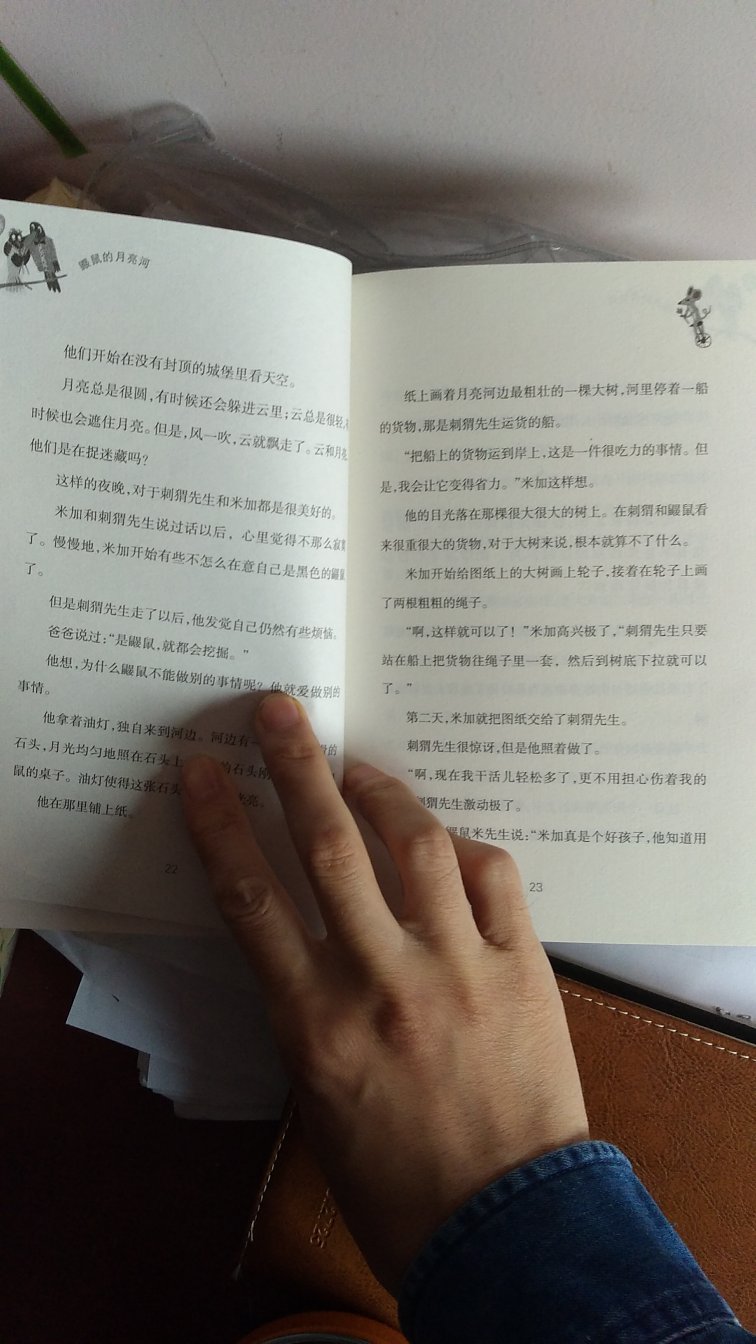 鼹鼠的月亮河
他们开始在没有封顶的城堡里看天空。
月亮总是很圆,有时候还会躲进云里;云总是很轻,有
时候也会遮住月亮。但是,风一吹,云就飘走了。云和月亮,
他们是在捉迷藏吗?
这样的夜晚,对于刺猬先生和米加都是很美好的。
米加和刺猬先生说过话以后,心里觉得不那么寂寞
了。慢慢地,米加开始有些不怎么在意自己是黑色的鼹鼠
了。
但是刺猬先生走了以后,他发觉自己仍然有些烦恼。
爸爸说过:“是鼹鼠,就都会挖掘。”
他想,为什么鼹鼠不能做别的事情呢?他就爱做别的
事情。
他拿着油灯,独自来到河边。河边有一 的
石头,月光均匀地照在石头上 的石头刚
鼠的桌子。油灯使得这张石头 亮。
他在那里铺上纸。
22
纸上画着月亮河边最粗壮的一棵大树,河里停着一船
的货物,那是刺猬先生运货的船。
“把船上的货物运到岸上,这是一件很吃力的事情。但
是,我会让它变得省力。”米加这样想。
他的目光落在那棵很大很大的树上。在刺猬和鼹鼠看
来很重很大的货物,对于大树来说,根本就算不了什么。
米加开始给图纸上的大树画上轮子,接着在轮子上画
了两根粗粗的绳子。
“啊,这样就可以了!”米加高兴极了,“刺猬先生只要
站在船上把货物往绳子里一套,然后到树底下拉就可以
了。”
第二天,米加就把图纸交给了刺猬先生。
刺猬先生很惊讶,但是他照着做了。
“啊,现在我干活儿轻松多了,更不用担心伤着我的
刺猬先生激动极了。
鼹鼠米先生说:“米加真是个好孩子,他知道用
23